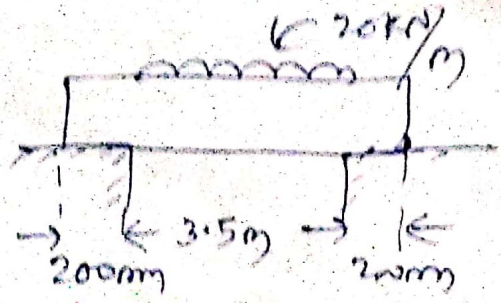 20KN/m
3.5m
200mm
200mm